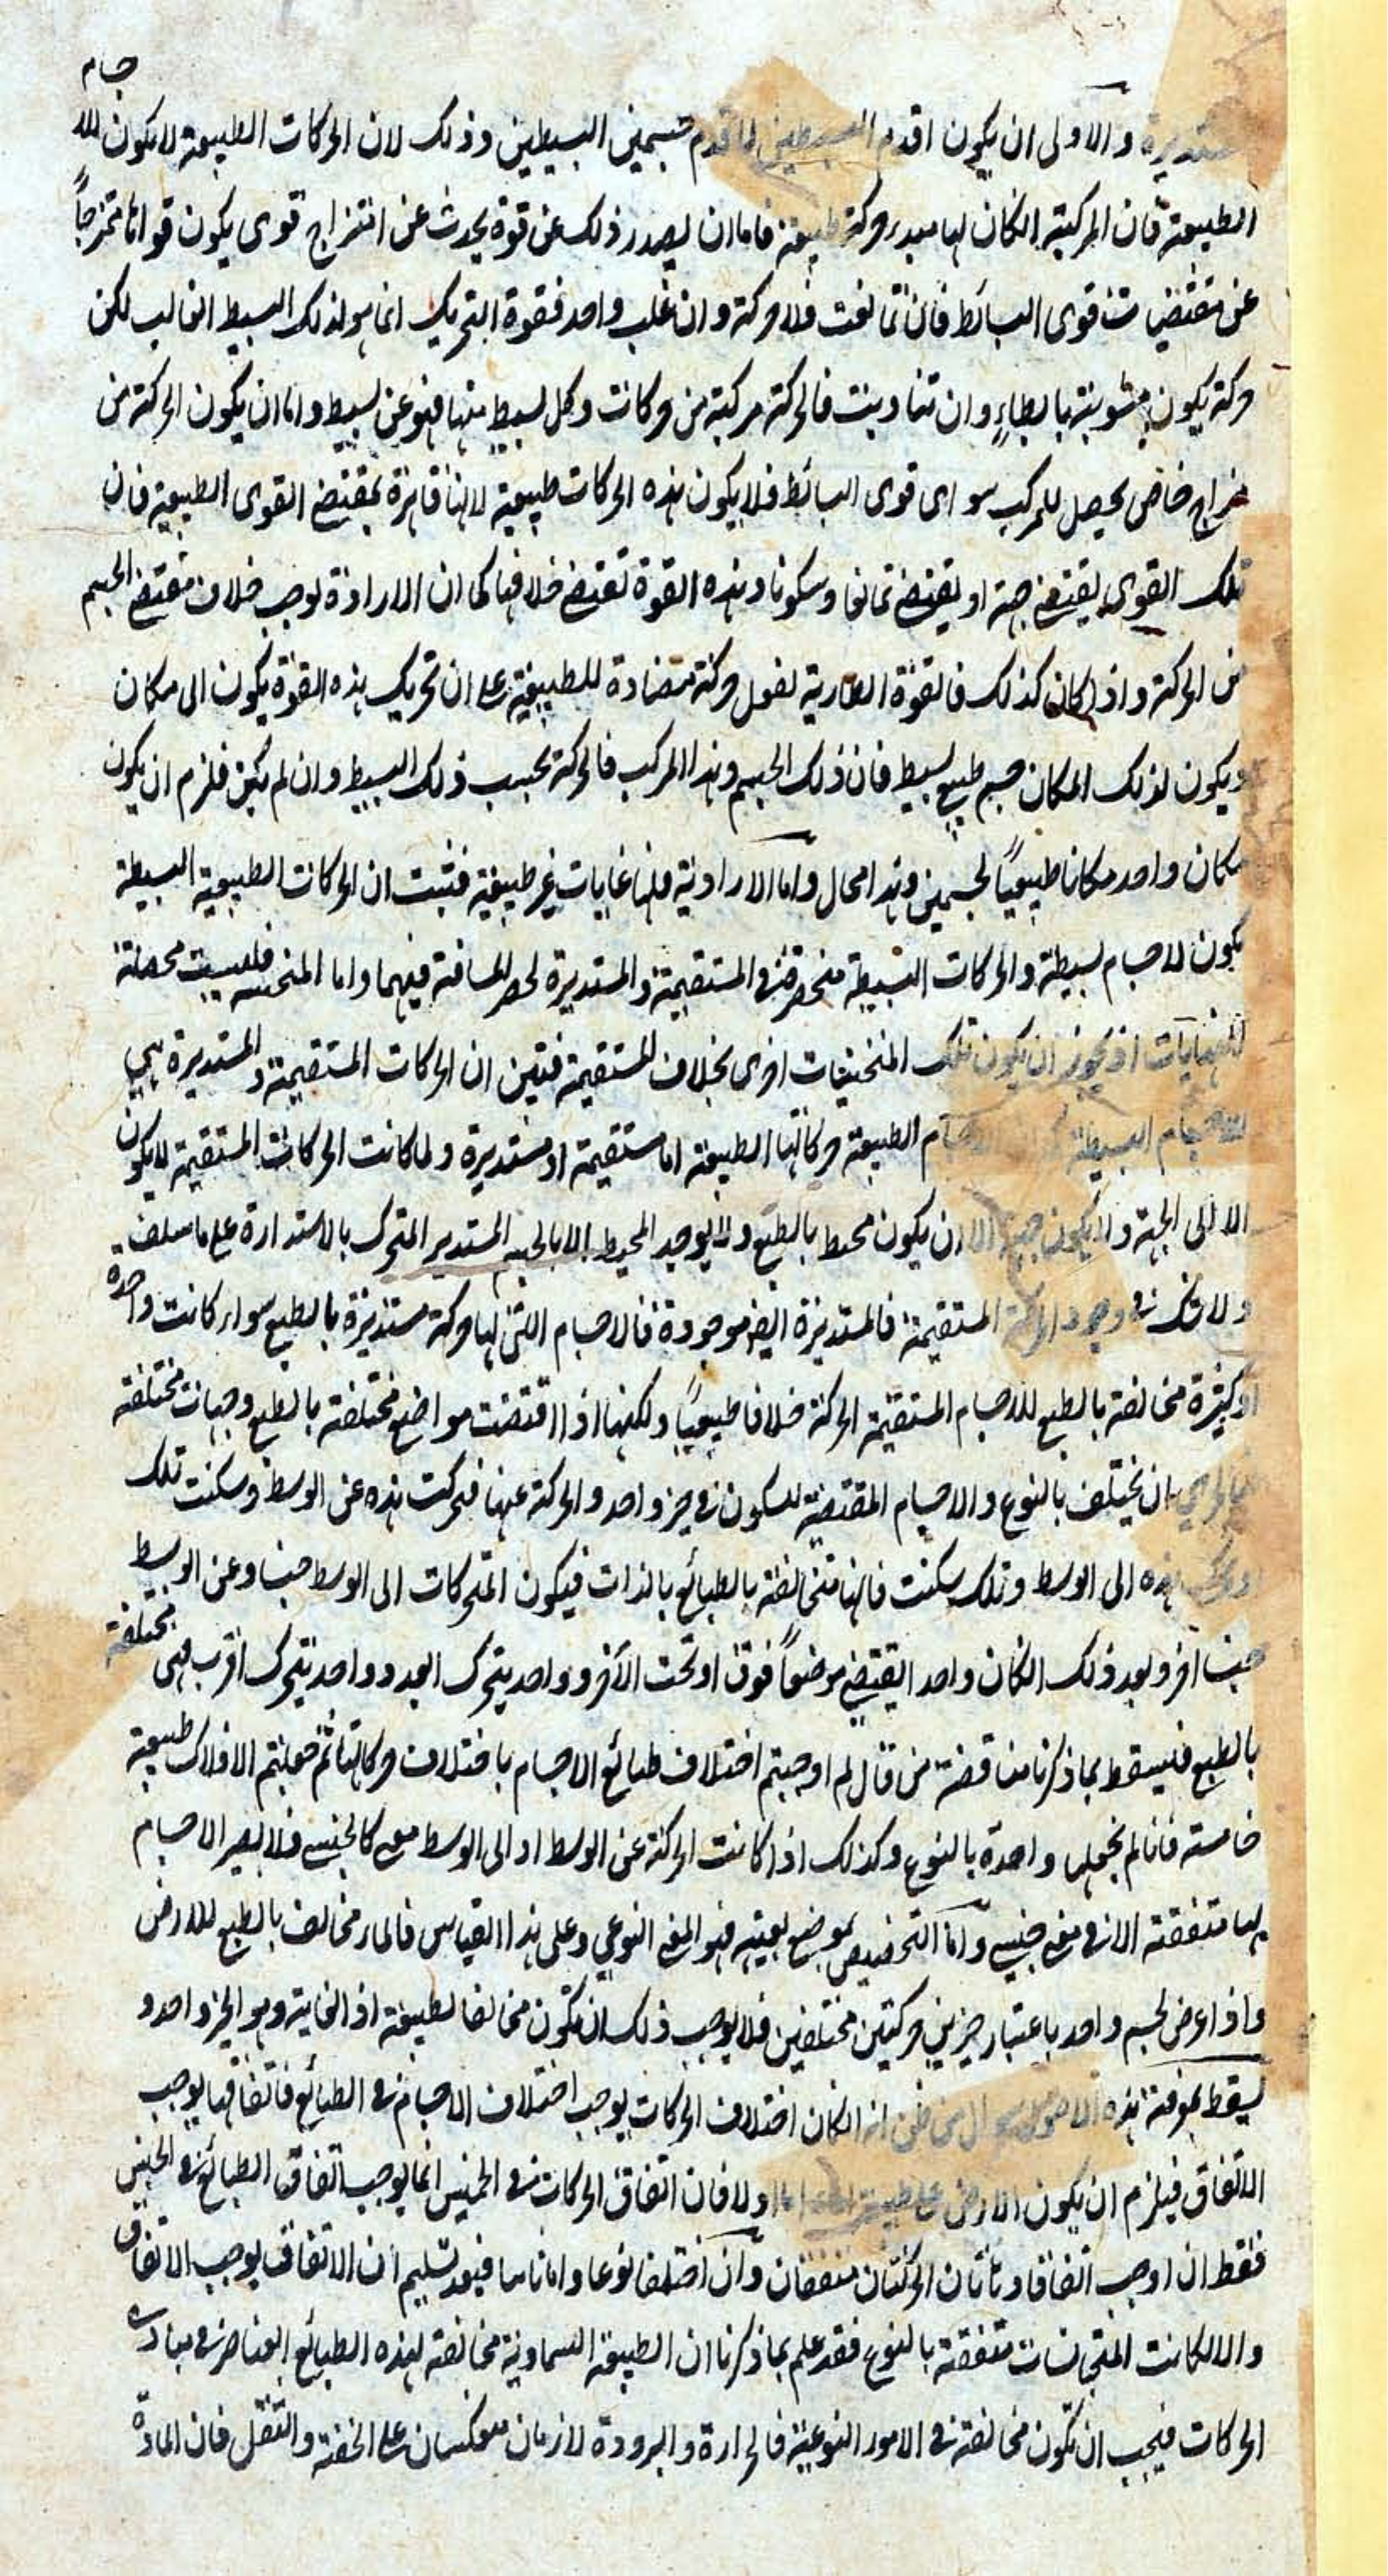 جسام
والاولى ان يكون اقدم البسيطين لاقدم جسمين البسيطين وذلك لان الحركات الطبيعية لا يكون للا
الطبيعية فان المركبة ان كان لها مبدء حركة طبيعية فاما ان يصدر ذلك عن قوة يحدث عن امتزاج قوى يكون قوامها ممتزجاً
عن مقتضيات قوى البسائط فان تمانعت فلا حركة وان غلب واحد فقوة التحريك انما هو لذلك البسيط الغالب لكن
حركة يكون مشوبة بابطاء وان تناوبت فالحركة مركبة من حركات وكل بسيط منها فهو عن بسيط واما ان يكون الحركة من
مزاج خاص يحصل للمركب سوى قوى البسائط فلا يكون هذه الحركات طبيعية لانها قاهرة بمقتضى القوى الطبيعية فان
تلك القوى يقتضى جهة او يقتضى تمانعا وسكونا وهذه القوة تقتضى خلافها كما ان الارادة توجب خلاف مقتضى الجسم
من الحركة واذا كان كذلك فالقوة العارية لفعل حركة متضادة للطبيعية على ان تحريك هذه القوة يكون الى مكان
ويكون لذلك المكان جسم طبيعى بسيط فان ذلك الجسم وهذا المركب فالحركة بحسب ذلك البسيط وان لم يكن فلزم ان يكون
مكان واحد مكانا طبيعياً لجسمين وهذا محال واما الارادية فلها غايات غير طبيعية فثبت ان الحركات الطبيعية البسيطة
يكون لاجسام بسيطة والحركات البسيطة منحصرة فى المستقيمة والمستديرة لحصر المسافة فيهما واما المنحنية فليست محصلة
النهايات اذ يجوز ان يكون تلك المنحنيات اخرى بخلاف المستقيمة فتبين ان الحركات المستقيمة والمستديرة هى
للاجسام البسيطة الاجسام الطبيعية حركاتها الطبيعية اما مستقيمة او مستديرة ولما كانت الحركات المستقيمة لا يكون
الا الى الجهة ولا يكون جهة الا ان يكون محيط بالطبع ولا يوجد المحيط الا بالجسم المستدير المتحرك بالاستدارة على ما سلف
ولا شك فى وجود الحركة المستقيمة فالمستديرة ايضا موجودة فالاجسام التى لها حركة مستديرة بالطبع سواء كانت واحدة
او كثيرة مخالفة بالطبع للاجسام المستقيمة الحركة خلافا طبيعياً ولكنها اذا اقتضت مواضع مختلفة بالطبع وجهات مختلفة
فبالحرى بان يختلف بالنوع والاجسام المقتضية للسكون فى حيز واحد والحركة عنها فتحركت هذه عن الوسط وسكنت تلك
هذه الى الوسط وتلك سكنت فانها متخالفة بالطبائع بالذات فيكون المتحركات الى الوسط جنسا وعن الوسط
جنسا آخر وبعد ذلك ان كان واحد يقتضى موضعاً فوق او تحت الآخر وواحد يتحرك ابعد وواحد يتحرك اقرب فهى مختلفة
بالطبع فيسقط بما ذكرنا مناقضة من قال لم اوجبتم اختلاف طبائع الاجسام باختلاف حركاتها ثم جعلتم الافلاك طبيعية
خامسة فانا لم نجعلها واحدة بالنوع وكذلك اذا كانت الحركة عن الوسط او الى الوسط معنى كالجنسى فلا يصير الاجسام
بها متفقة الا فى معنى جنسى واما التخصيص بموضع بعينه فهو المعنى النوعى وعلى هذا القياس فالماء مخالف بالطبع للارض
واذا عرض لجسم واحد باعتبار حيزين حركتين مختلفتين فلا يوجب ذلك ان تكون مخالفا لطبيعة اذ الغاية وهو الحيز واحد و
يسقط بمعرفة هذه الاصول سؤال من ظن انه ان كان اختلاف الحركات يوجب اختلاف الاجسام فى الطبائع فاتفاقها يوجب
الاتفاق فيلزم ان يكون الارض على طبيعة الماء اما اولا فان اتفاق الحركات فى الجنس انما يوجب اتفاق الطبائع فى الجنس
فقط ان اوجب اتفاقا وهاتان الحركتان متفقتان وان اختلفا نوعا واما ثانيا فبعد تسليم ان الاتفاق يوجب الاتفاق
والا لكانت المتجانسات متفقة بالنوع فقد علم بما ذكرنا ان الطبيعة السماوية مخالفة لهذه الطبائع العناصر فى مبادى
الحركات فيجب ان تكون مخالفة فى الامور النوعية فالحرارة والبرودة لازمان منعكسان على الخفة والثقل فان المادة